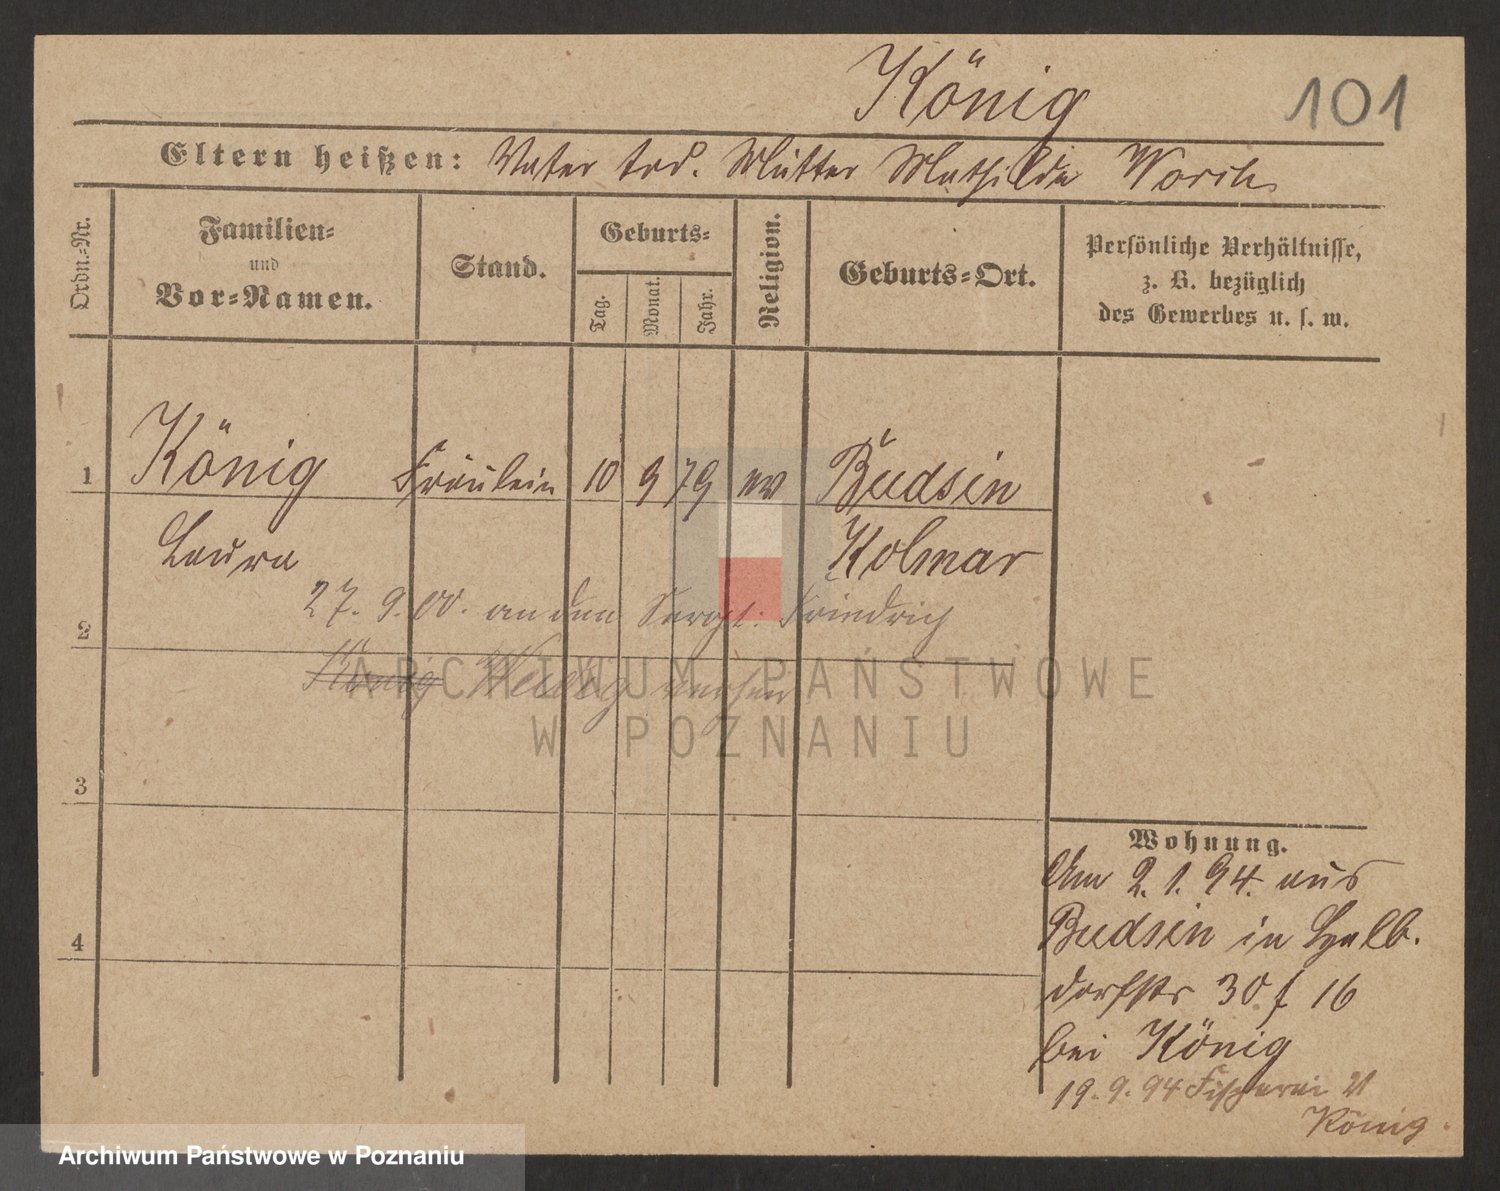 König
101
Eltern heißen: Vater tod. Mutter Mathilde
Ordn.-Nr.
Familien-
und
Vor-Namen.
Stand.
Geburts-
Tag.
Monat.
Jahr.
Religion.
Geburts-Ort.
Persönliche Verhältnisse,
z. B. bezüglich
des Gewerbes u. s. w.
1 König Fräulein 10 9 79 ev Budsin
Laura Kolmar
27. 9. 00. an den Sergt. Friedrich
2
König
3
Wohnung.
Am 2. 1. 94. aus
Budsin in Halb.
dorfstr 30 f 16
bei König
19. 9. 94 Fischerei 21
König.
4
ARCHIWUM PAŃSTWOWE
W POZNANIU
Archiwum Państwowe w Poznaniu